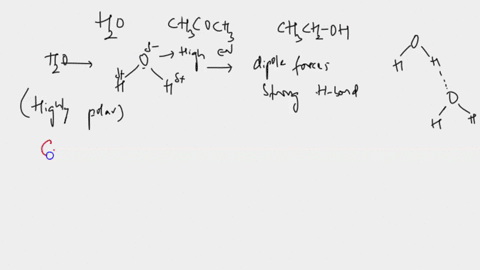 H2O CH3COCH3 CH3CH2-OH
H2O → O δ- → High EN → dipole forces
H δ+ H δ+ Strong H-bond
(Highly polar)
C
O
H H
O
H H